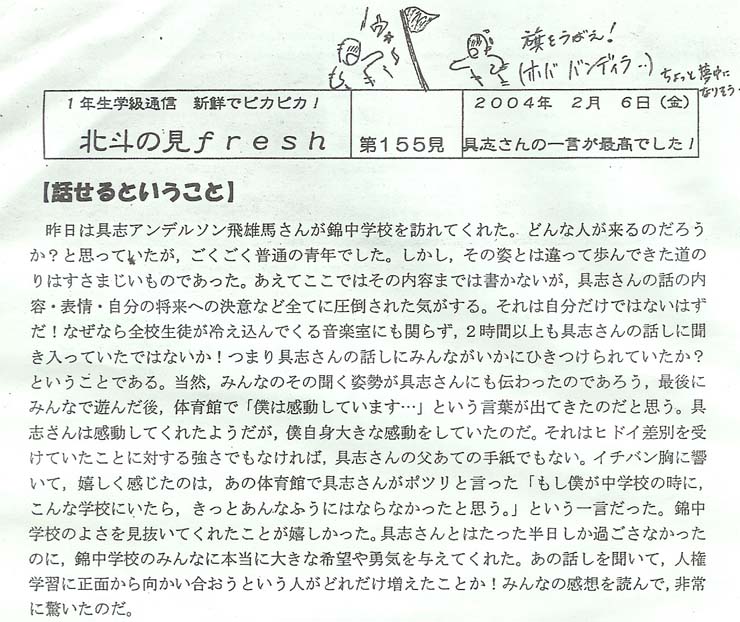 旗をうばえ!
(ホバ バンディラ‥)
ちょっと夢中に
なりそう‥
1年生学級通信 新鮮でピカピカ!
2004年 2月 6日(金)
北斗の見fresh
第155見
具志さんの一言が最高でした!
【話せるということ】
昨日は具志アンデルソン飛雄馬さんが錦中学校を訪れてくれた。どんな人が来るのだろう
か?と思っていたが,ごくごく普通の青年でした。しかし,その姿とは違って歩んできた道の
りはすさまじいものであった。あえてここではその内容までは書かないが,具志さんの話の内
容・表情・自分の将来への決意など全てに圧倒された気がする。それは自分だけではないはず
だ!なぜなら全校生徒が冷え込んでくる音楽室にも関らず,2時間以上も具志さんの話しに聞
き入っていたではないか!つまり具志さんの話しにみんながいかにひきつけられていたか?
ということである。当然,みんなのその聞く姿勢が具志さんにも伝わったのであろう,最後に
みんなで遊んだ後,体育館で「僕は感動しています…」という言葉が出てきたのだと思う。具
志さんは感動してくれたようだが,僕自身大きな感動をしていたのだ。それはヒドイ差別を受
けていたことに対する強さでもなければ,具志さんの父あての手紙でもない。イチバン胸に響
いて,嬉しく感じたのは,あの体育館で具志さんがポツリと言った「もし僕が中学校の時に,
こんな学校にいたら,きっとあんなふうにはならなかったと思う。」という一言だった。錦中
学校のよさを見抜いてくれたことが嬉しかった。具志さんとはたった半日しか過ごさなかった
のに,錦中学校のみんなに本当に大きな希望や勇気を与えてくれた。あの話しを聞いて,人権
学習に正面から向かい合おうという人がどれだけ増えたことか!みんなの感想を読んで,非常
に驚いたのだ。